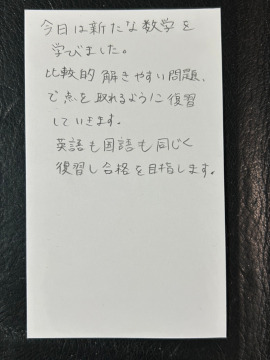 今日は新たな数学を
学びました。
比較的 解きやすい問題、
で点を取れるように復習
していきます。
英語も国語も同じく
復習し合格を目指します。